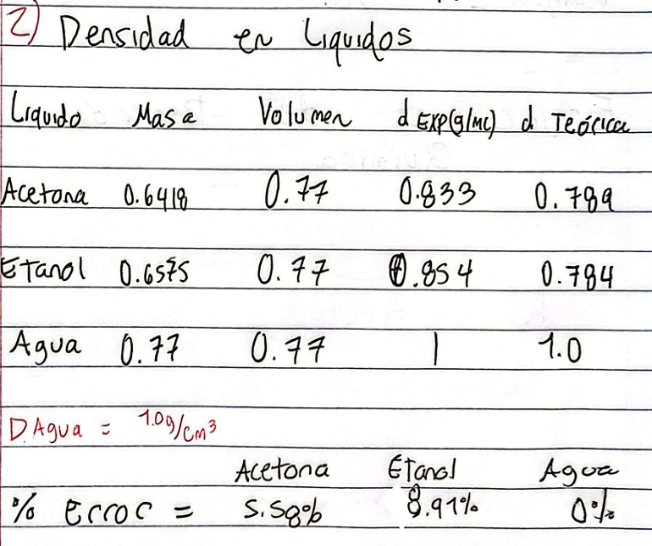 2) Densidad en Liquidos
Liquido Masa Volumen d Exp(g/mL) d Teórica
Acetona 0.6418 0.77 0.833 0.789
Etanol 0.6575 0.77 0.854 0.784
Agua 0.77 0.77 1 1.0
D Agua = 1.0g/cm³
Acetona Etanol Agua
% Error = 5.58% 8.91% 0%